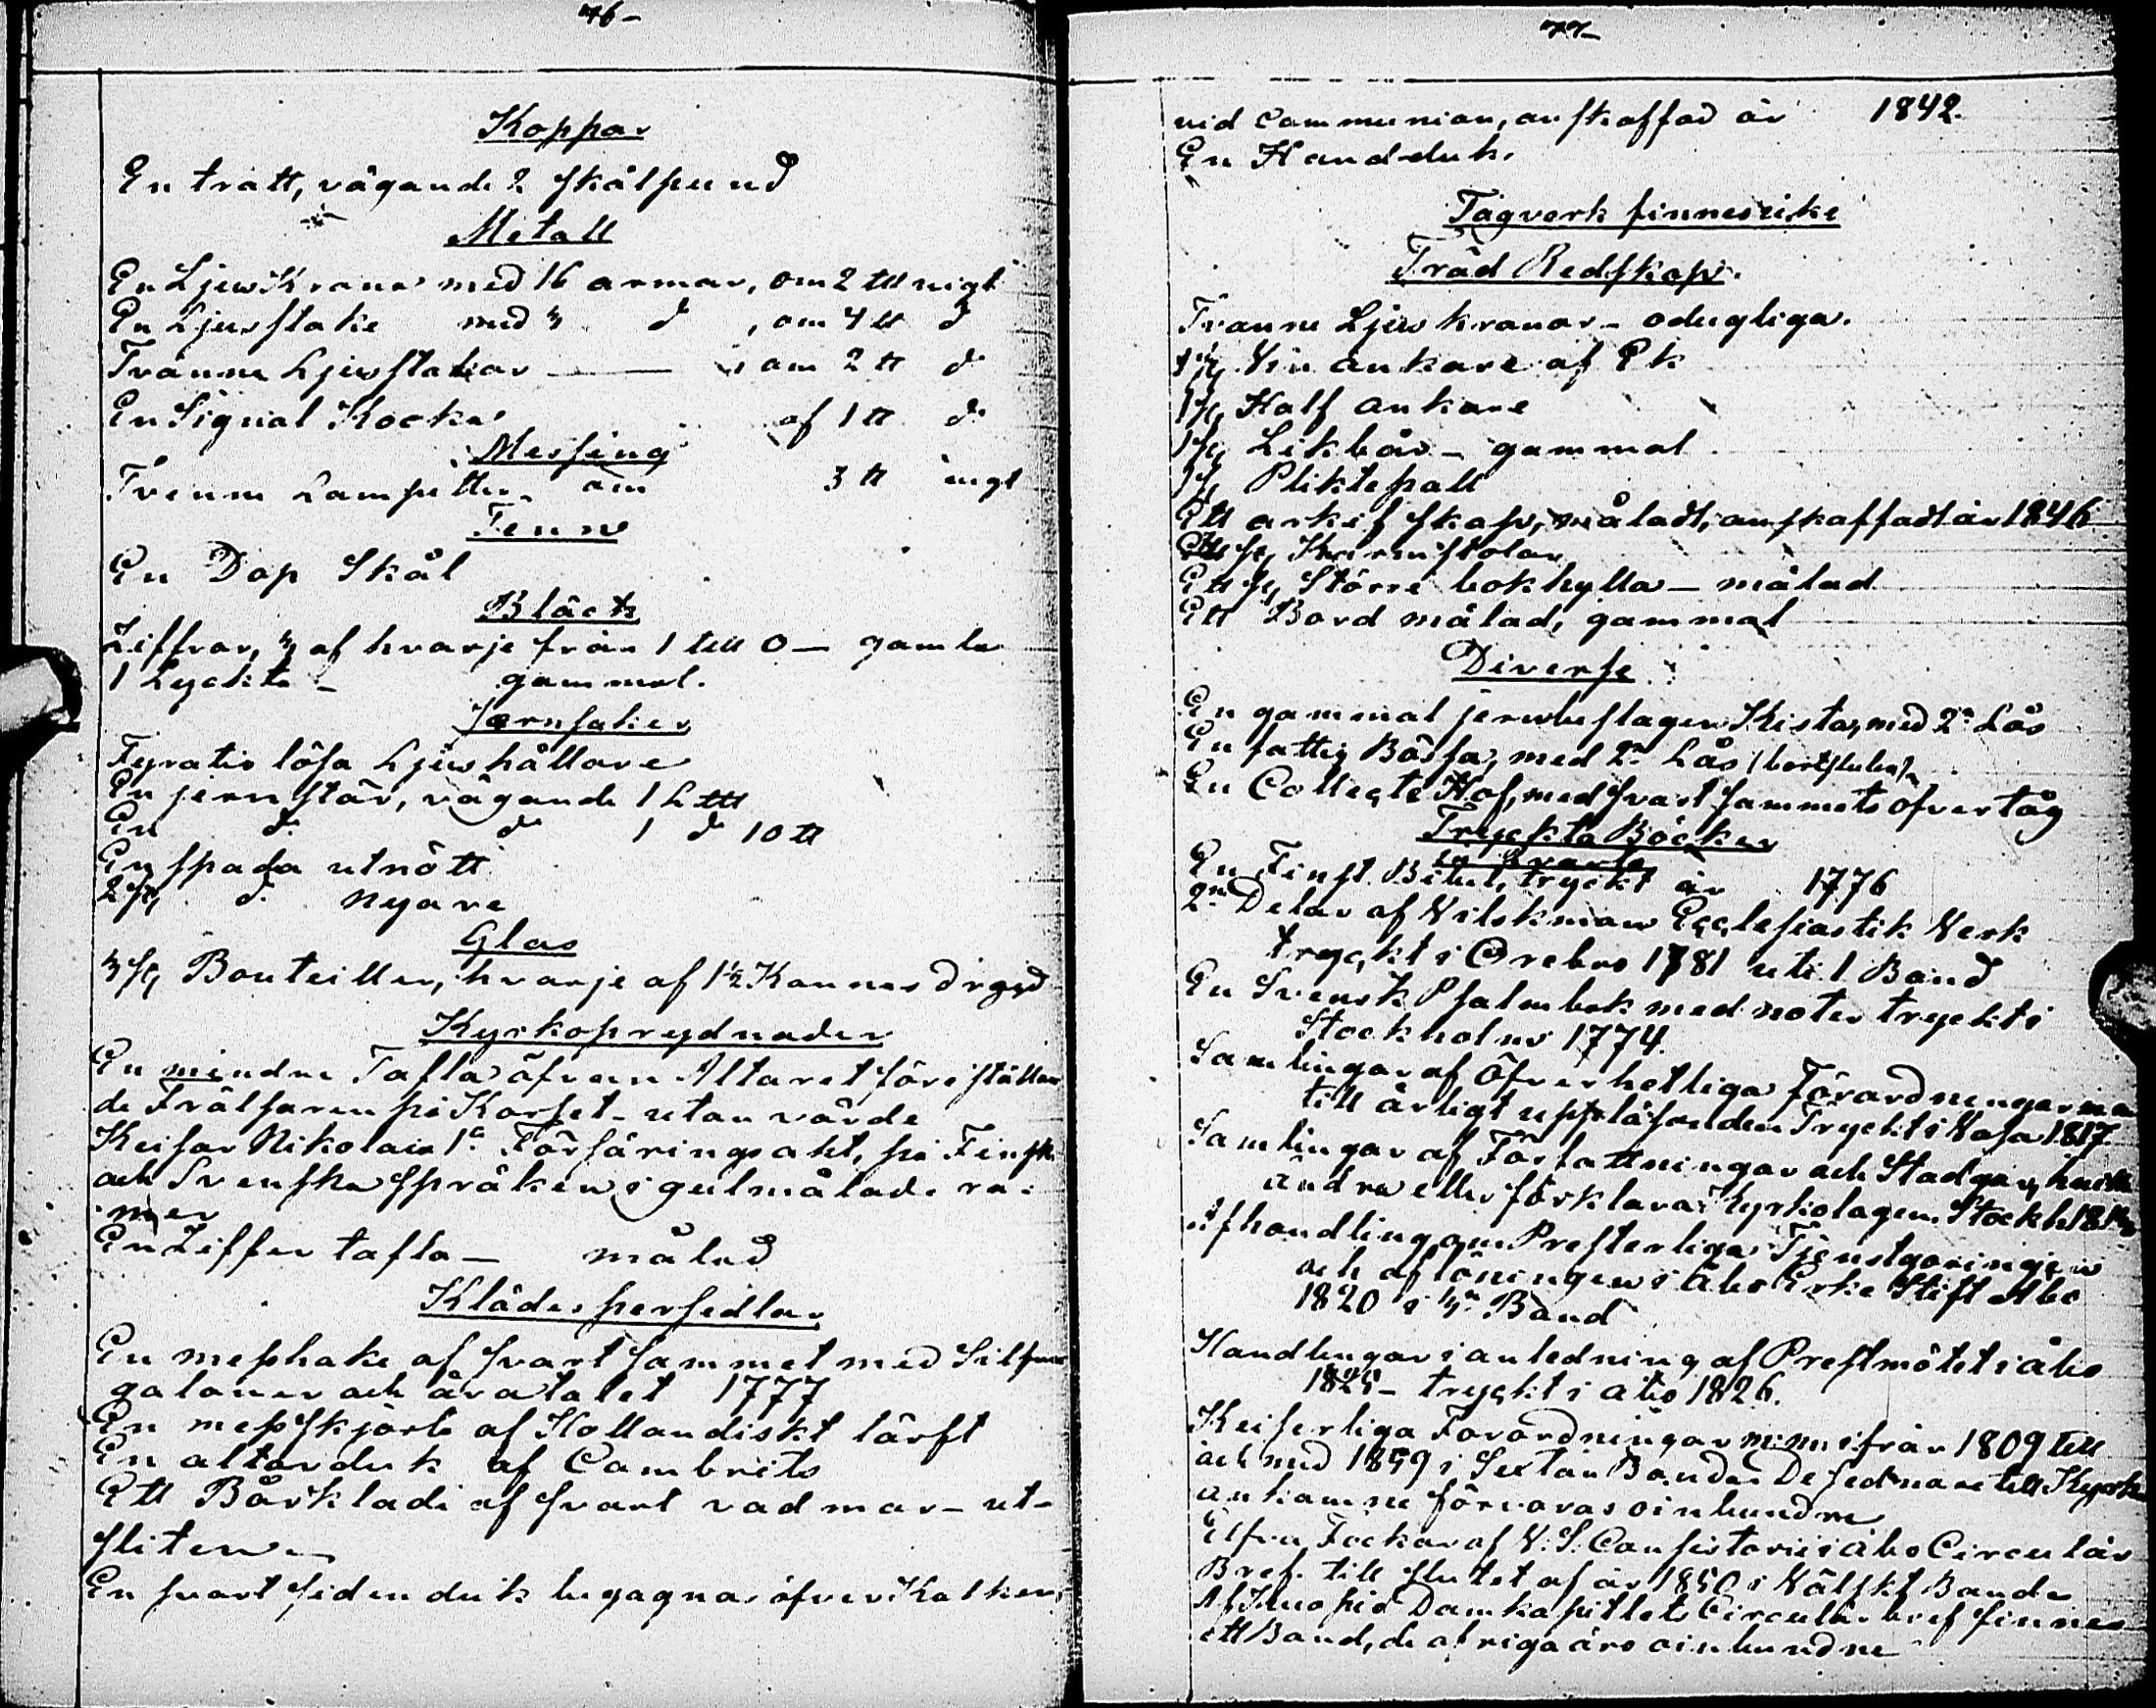 76-
Koppar
En tratt, vägande 2 skålpund
Metall
En Ljus Krona med 16 armar, om 2 ℔ vigt
En Ljusstake med 3 d:o, om 4 ℔ d:o
Tvänne Ljusstakar — om 2 ℔ d:o
En Signal Klocka af 1 ℔ d:o
Messing
Tvenne Lampetter om 3 ℔ vigt
Tenn
En Dop Skål
Bläck
Ziffror, 3 af hvarje från 1 till 0 — gamla
1 Lyckta - gammal.
Jernsaker
Fyratio lösa Ljushållare
En jernstör, vägande 1 L℔
En d:o d:o 1 d:o 10 ℔
En spada utnött
2 st, d:o nyare
Glas
3 st, Bouteiller, hvarje af 1½ Kannas drygd
Kyrkoprydnader
En mindre Tafla öfvan Altaret föreställan
de Frälsaren på Korset - utan värde
Keisar Nikolais 1:a Försäringsakt, på Finska
och Svenska språken i gulmålade ra:
mer
En Ziffer tafla — målad
Klädespersedlar
En messhake af svart sammet med Silfver
galoner och åratalet 1777
En messskjorta af Hollandiskt lärft
En altarduk af Cambrits
Ett Bårkläde af svart vadmar - ut-
sliten
En svart siden duk begagnas öfver Kalken
77-
vid Communion, anskaffad år 1842.
En Handduk.
Tågverk finnes icke
Träd Redskap.
Tvänne Ljus kronor - odugliga.
1 st, Vin ankare af Ek
1 st, Half ankare
1 st, Likbår - gammal
1 st, Pliktepall
Ett arkif skåp, måladt, anskaffadt år 1846
st, Karmstolar
Ett st, Större bokhylla — målad
Ett Bord målad, gammal
Diverse
En gammal jernbeslagen Kista, med 2:ne Lås
En fattig Bössa, med 2:ne Lås (bortstulen)
En Collecte Hof, med svart sammets öfvertåg
Tryckta Böcker
in Qvarto
En Finsk Bibel, tryckt år 1776
2:ne Delar af Wilskmans Ecclesiastik Verk
tryckt i Örebro 1781 uti 1 Band
En Svensk Psalmbok med noter tryckt i
Stockholm 1774.
Samlingar af Öfverhetliga Förordningar
till årligt uppläsande Tryckt i Wasa 1817
Samlingar af Författningar och Stadgar, hvilka
ändra eller förklara Kyrkolagen. Stockh.
Afhandling om Presterliga Tjenstgöringen
och aflöningen i Åbo Erke Stift Åbo
1820 i Band
Handlingar i anledning af Prestmötet i Åbo
1825 - tryckt i Åbo 1826.
Keiserliga Förordningar m:m: ifrån 1809 till
och med 1859 i Sextan Bander De sednare till Kyrkan
ankomne förvaras oinbundne
Elfva Fockor af V: S: Consistorii i Åbo Circulär
Bref till slutet af år 1850 i Välskt Band
Af Kuopio Domkapitlets Circulär bref finnes
ett Band, de öfriga äro oinbundne